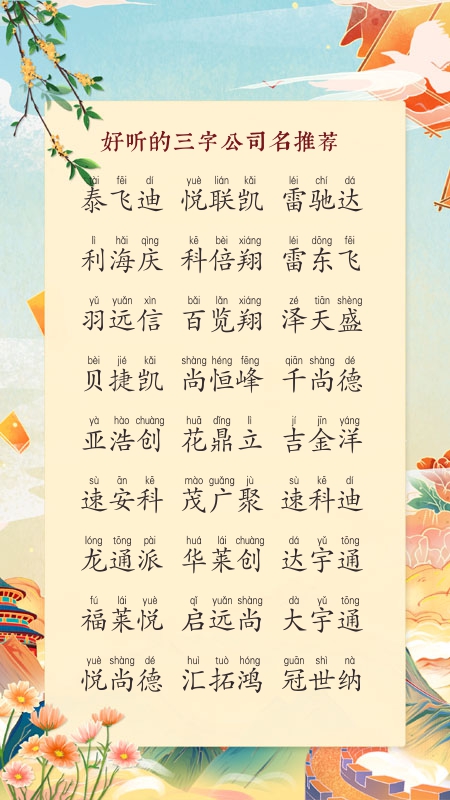 好听的三字公司名推荐
tài fēi dí yuè lián kǎi léi chí dá
泰飞迪 悦联凯 雷驰达
lì hǎi qìng kē bèi xiáng léi dōng fēi
利海庆 科倍翔 雷东飞
yǔ yuǎn xìn bǎi lǎn xiáng zé tiān shèng
羽远信 百览翔 泽天盛
bèi jié kǎi shàng héng fēng qiān shàng dé
贝捷凯 尚恒峰 千尚德
yà hào chuàng huā dǐng lì jí jīn yáng
亚浩创 花鼎立 吉金洋
sù ān kē mào guǎng jù sù kē dí
速安科 茂广聚 速科迪
lóng tōng pài huá lái chuàng dá yǔ tōng
龙通派 华莱创 达宇通
fú lái yuè qǐ yuǎn shàng dà yǔ tōng
福莱悦 启远尚 大宇通
yuè shàng dé huì tuò hóng guān shì nà
悦尚德 汇拓鸿 冠世纳